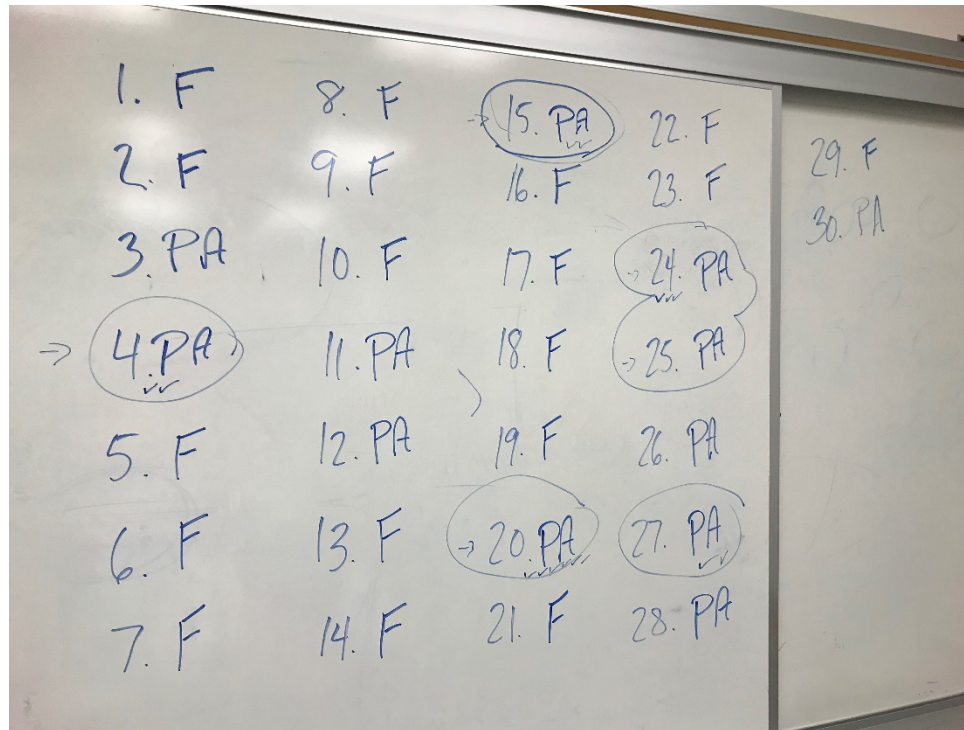 1. F
2. F
3. PA
→ 4. PA
5. F
6. F
7. F
8. F
9. F
10. F
11. PA
12. PA
13. F
14. F
→ 15. PA
16. F
17. F
18. F
19. F
→ 20. PA
21. F
22. F
23. F
→ 24. PA
→ 25. PA
26. PA
27. PA
28. PA
29. F
30. PA